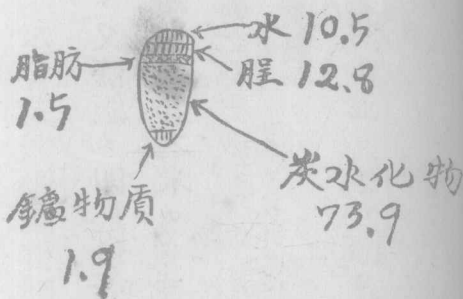 水 10.5
脂肪
1.5
12.8
炭水化物
73.9
鑛物质
1.9